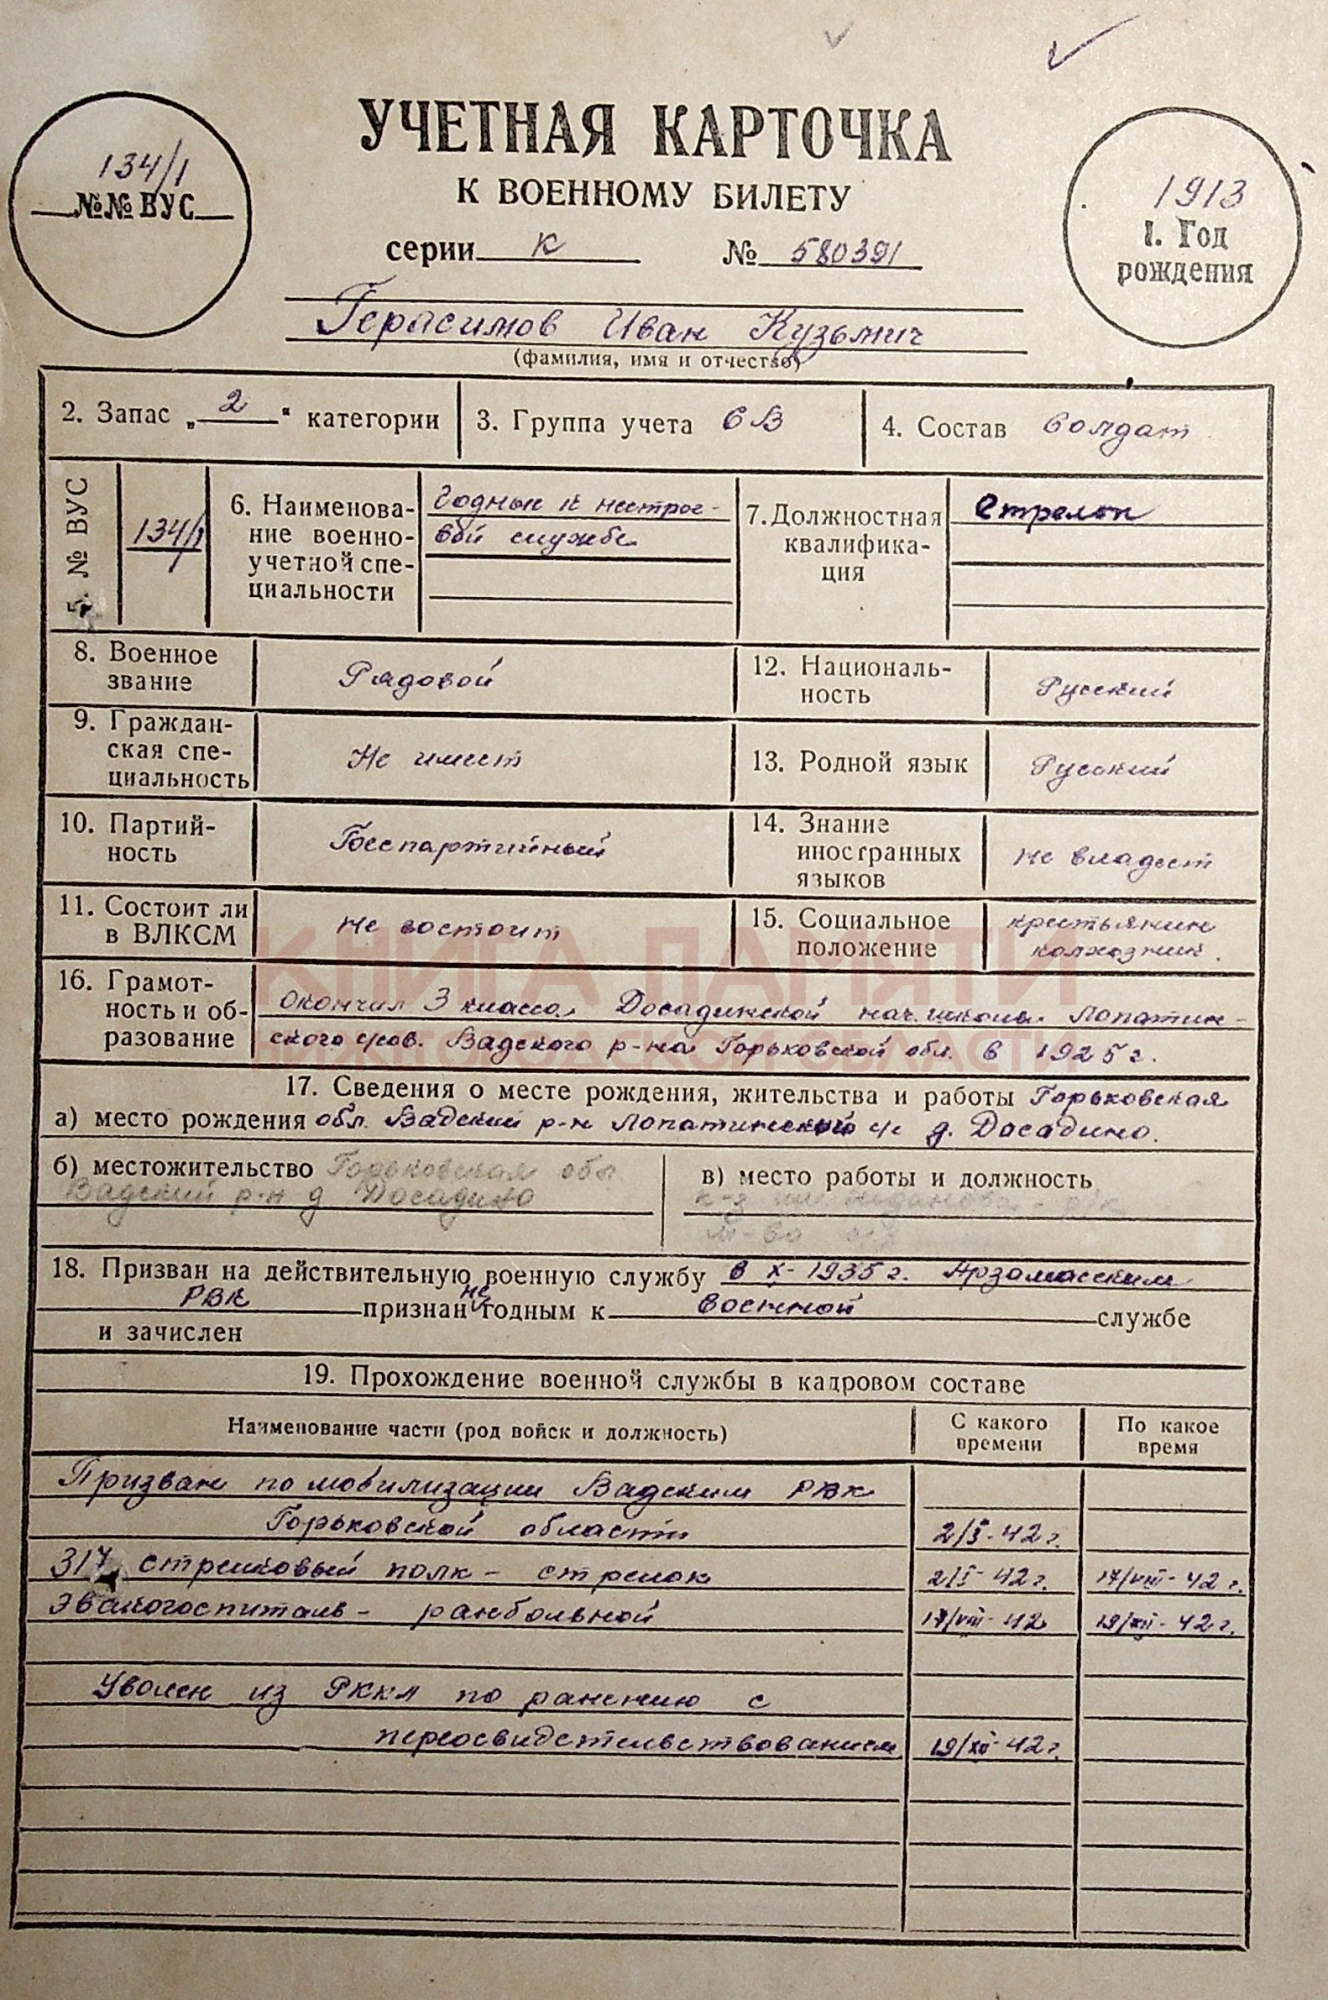 134/1
№№ ВУС
УЧЕТНАЯ КАРТОЧКА
К ВОЕННОМУ БИЛЕТУ
серии К № 580391
1913
1. Год
рождения
Герасимов Иван Кузьмич
(фамилия, имя и отчество)
2. Запас „2" категории
3. Группа учета СВ
4. Состав солдат
5. № ВУС
134/1
6. Наименова-
ние военно-
учетной спе-
циальности
Годный к нестрое-
вой службе
7. Должностная
квалифика-
ция
Стрелок
8. Военное
звание
Рядовой
12. Националь-
ность
Русский
9. Граждан-
ская спе-
циальность
Не имеет
13. Родной язык
Русский
10. Партий-
ность
Беспартийный
14. Знание
иностранных
языков
Не владеет
11. Состоит ли
в ВЛКСМ
Не состоит
15. Социальное
положение
крестьянин
колхозник.
КНИГА ПАМЯТИ
16. Грамот-
ность и об-
разование
окончил 3 класса Досадинской нач. школы Лопатин-
ского с/сов. Вадского р-на Горьковской обл. в 1925 г.
17. Сведения о месте рождения, жительства и работы Горьковская
а) место рождения обл. Вадский р-н Лопатинский с/с д. Досадино.
б) местожительство Горьковская обл.
Вадский р-н д Досадино
в) место работы и должность
к-з им Жданова
18. Призван на действительную военную службу в X-1935 г. Арзамасским
РВК признан не годным к военной службе
и зачислен
19. Прохождение военной службы в кадровом составе
Наименование части (род войск и должность)
С какого
времени
По какое
время
Призван по мобилизации Вадским РВК
Горьковской области 2/I-42 г.
317 стрелковый полк - стрелок 2/I-42 г. 17/VIII-42 г.
Эвакогоспиталь - ранбольной 17/VIII-42 19/XII-42 г.
Уволен из РККА по ранению с
переосвидетельствованием 19/XII-42 г.